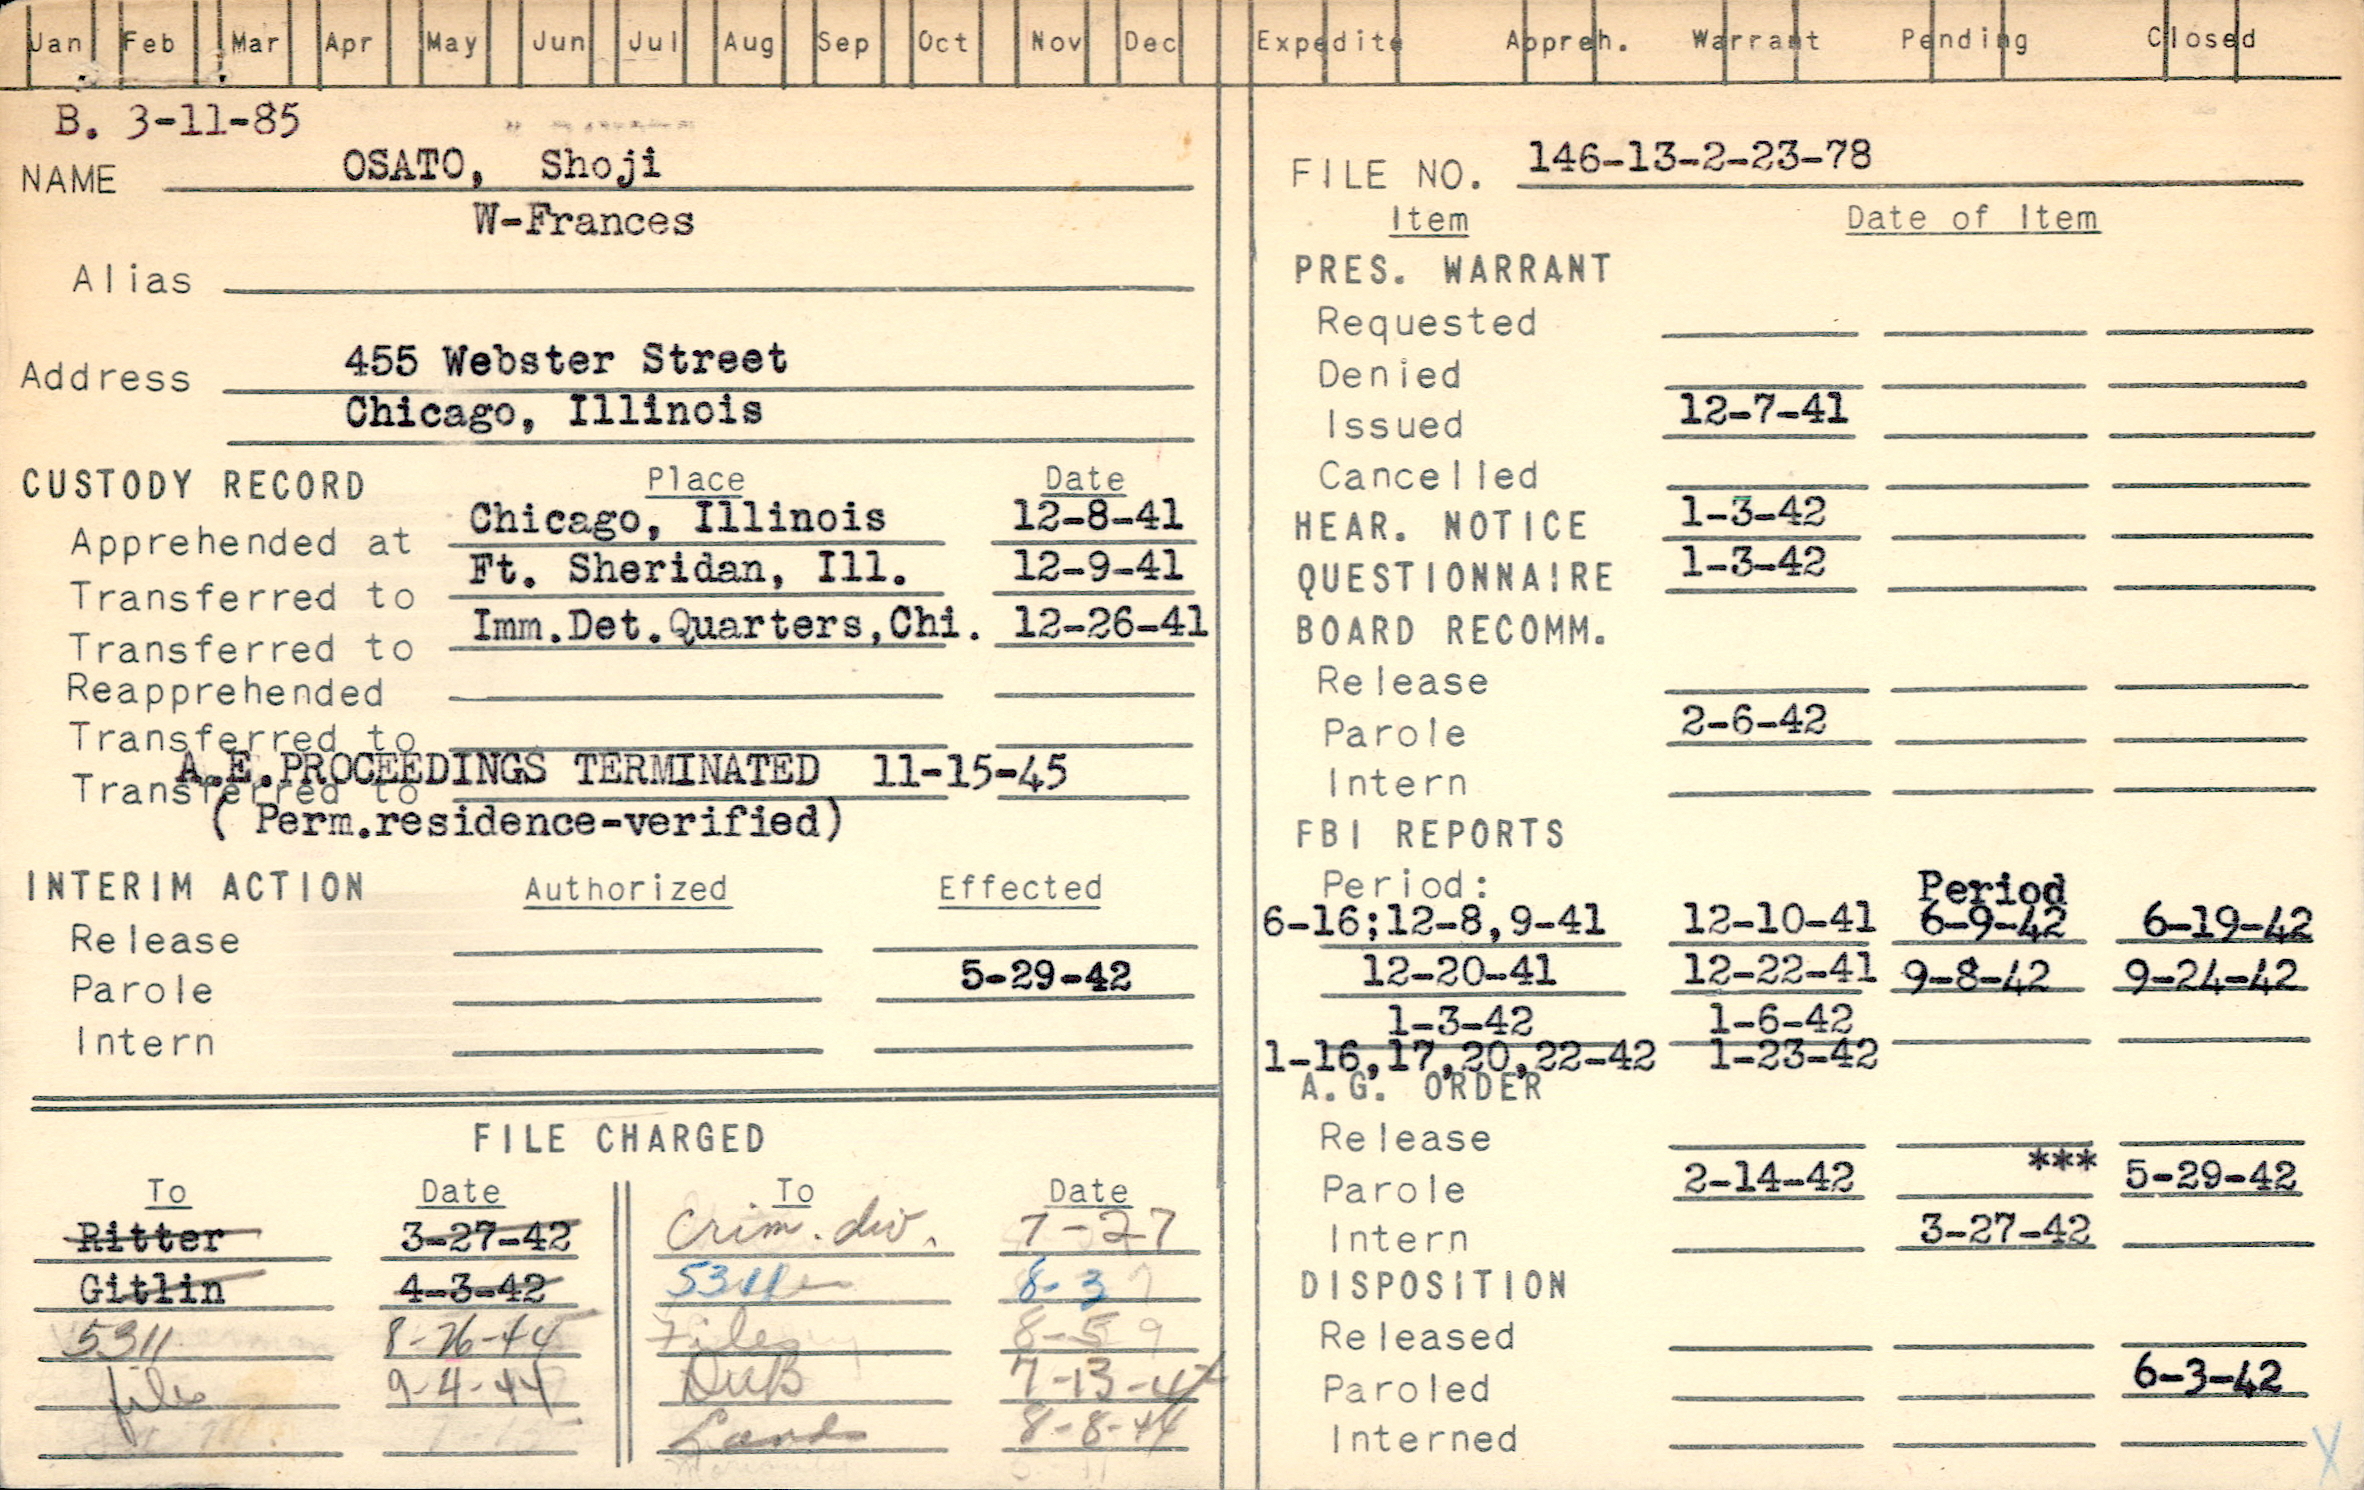 Jan Feb Mar Apr May Jun Jul Aug Sep Oct Nov Dec Expedite Appreh. Warrant Pending Closed
B. 3-11-85
NAME OSATO, Shoji
W-Frances
Alias
Address 455 Webster Street
Chicago, Illinois
CUSTODY RECORD Place Date
Apprehended at Chicago, Illinois 12-8-41
Transferred to Ft. Sheridan, Ill. 12-9-41
Transferred to Imm.Det.Quarters,Chi. 12-26-41
Reapprehended
Transferred to
A.E.PROCEEDINGS TERMINATED 11-15-45
Transferred to
( Perm.residence-verified)
INTERIM ACTION Authorized Effected
Release
Parole 5-29-42
Intern
FILE CHARGED
To Date To Date
Ritter 3-27-42 Crim. div. 7-27
Gitlin 4-3-42 5311 8-3
5311 8-26-44 Files 8-5
file 9-4-44 7-13-42
8-8-44
FILE NO. 146-13-2-23-78
Item Date of Item
PRES. WARRANT
Requested
Denied
Issued 12-7-41
Cancelled
HEAR. NOTICE 1-3-42
QUESTIONNAIRE 1-3-42
BOARD RECOMM.
Release
Parole 2-6-42
Intern
FBI REPORTS
Period: Period
6-16;12-8,9-41 12-10-41 6-9-42 6-19-42
12-20-41 12-22-41 9-8-42 9-24-42
1-3-42 1-6-42
1-16,17,20,22-42 1-23-42
A.G. ORDER
Release
Parole 2-14-42 *** 5-29-42
Intern 3-27-42
DISPOSITION
Released
Paroled 6-3-42
Interned
X